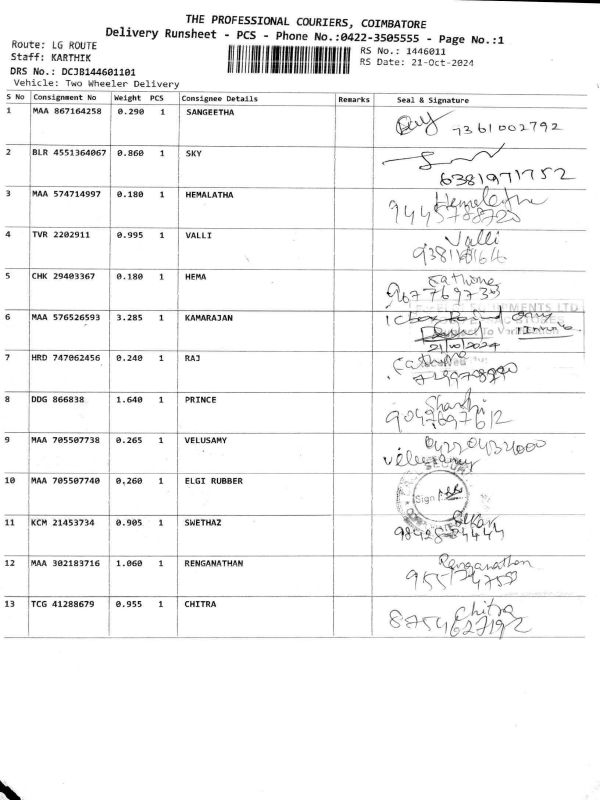 THE PROFESSIONAL COURIERS, COIMBATORE
Delivery Runsheet - PCS - Phone No.:0422-3505555 - Page No.:1
Route: LG ROUTE
Staff: KARTHIK
DRS No.: DCJB144601101
Vehicle: Two Wheeler Delivery
RS No.: 1446011
RS Date: 21-Oct-2024
S No Consignment No Weight PCS Consignee Details Remarks Seal & Signature
1 MAA 867164258 0.290 1 SANGEETHA 7361002792
2 BLR 4551364067 0.860 1 SKY 6381971752
3 MAA 574714997 0.180 1 HEMALATHA Hemalatha
4 TVR 2202911 0.995 1 VALLI Valli
5 CHK 29403367 0.180 1 HEMA
6 MAA 576526593 3.285 1 KAMARAJAN 1 Cbox
21/10/2024
7 HRD 747062456 0.240 1 RAJ
8 DDG 866838 1.640 1 PRINCE
9047697612
9 MAA 705507738 0.265 1 VELUSAMY
Velusamy
10 MAA 705507740 0.260 1 ELGI RUBBER Sign
11 KCM 21453734 0.905 1 SWETHAZ
12 MAA 302183716 1.060 1 RENGANATHAN Renganathan
13 TCG 41288679 0.955 1 CHITRA Chitra
8754627192